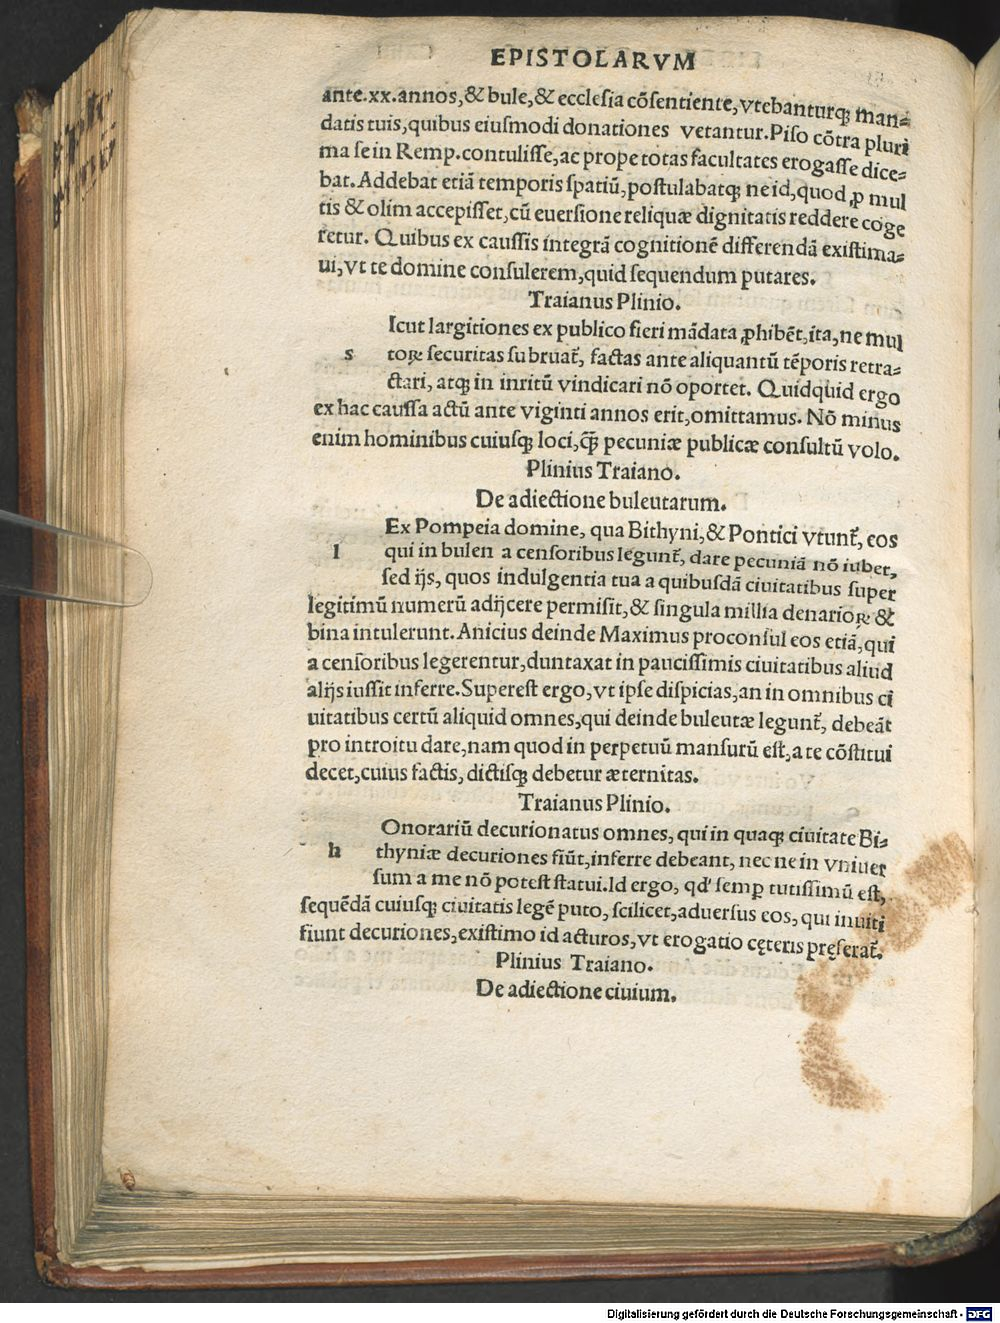 EPISTOLARVM
ante.xx.annos,& bule,& ecclesia cõsentiente,vtebanturq; man-
datis tuis,quibus eiusmodi donationes vetantur.Piso cõtra pluri
ma se in Remp.contulisse,ac prope totas facultates erogasse dice-
bat.Addebat etiã temporis spatiũ,postulabatq; ne id,quod ꝓ mul
tis & olim accepisset,cũ euersione reliquæ dignitatis reddere coge
retur. Quibus ex caussis integrã cognitionẽ differendã existima-
ui,vt te domine consulerem,quid sequendum putares.
Traianus Plinio.
Icut largitiones ex publico fieri mãdata ꝓhibẽt,ita,ne mul
s toꝝ securitas subruat᷑, factas ante aliquantũ tẽporis retra-
ctari, atq; in inritũ vindicari nõ oportet. Quidquid ergo
ex hac caussa actũ ante viginti annos erit,omittamus. Nõ minus
enim hominibus cuiusq; loci,q̃; pecuniæ publicæ consultũ volo.
Plinius Traiano.
De adiectione buleutarum.
Ex Pompeia domine, qua Bithyni,& Pontici vtunt᷑, eos
l qui in bulen a censoribus legunt᷑, dare pecuniã nõ iubet,
sed ijs, quos indulgentia tua a quibusdã ciuitatibus super
legitimũ numerũ adijcere permisit,& singula millia denarioꝝ &
bina intulerunt.Anicius deinde Maximus proconsul eos etiã,qui
a censoribus legerentur,duntaxat in paucissimis ciuitatibus aliud
alijs iussit inferre.Superest ergo,vt ipse dispicias,an in omnibus ci
uitatibus certũ aliquid omnes,qui deinde buleutæ legunt᷑, debeãt
pro introitu dare,nam quod in perpetuũ mansurũ est,a te cõstitui
decet,cuius factis, dictisq; debetur æternitas.
Traianus Plinio.
Onorariũ decurionatus omnes, qui in quaq; ciuitate Bi-
h thyniæ decuriones fiũt,inferre debeant, nec ne in vniuer
sum a me nõ potest statui.Id ergo, qd' semꝑ tutissimũ est,
sequẽdã cuiusq; ciuitatis legẽ puto, scilicet,aduersus eos, qui inuiti
fiunt decuriones,existimo id acturos,vt erogatio cęteris pręferat᷑.
Plinius Traiano.
De adiectione ciuium.
Digitalisierung gefördert durch die Deutsche Forschungsgemeinschaft - DFG